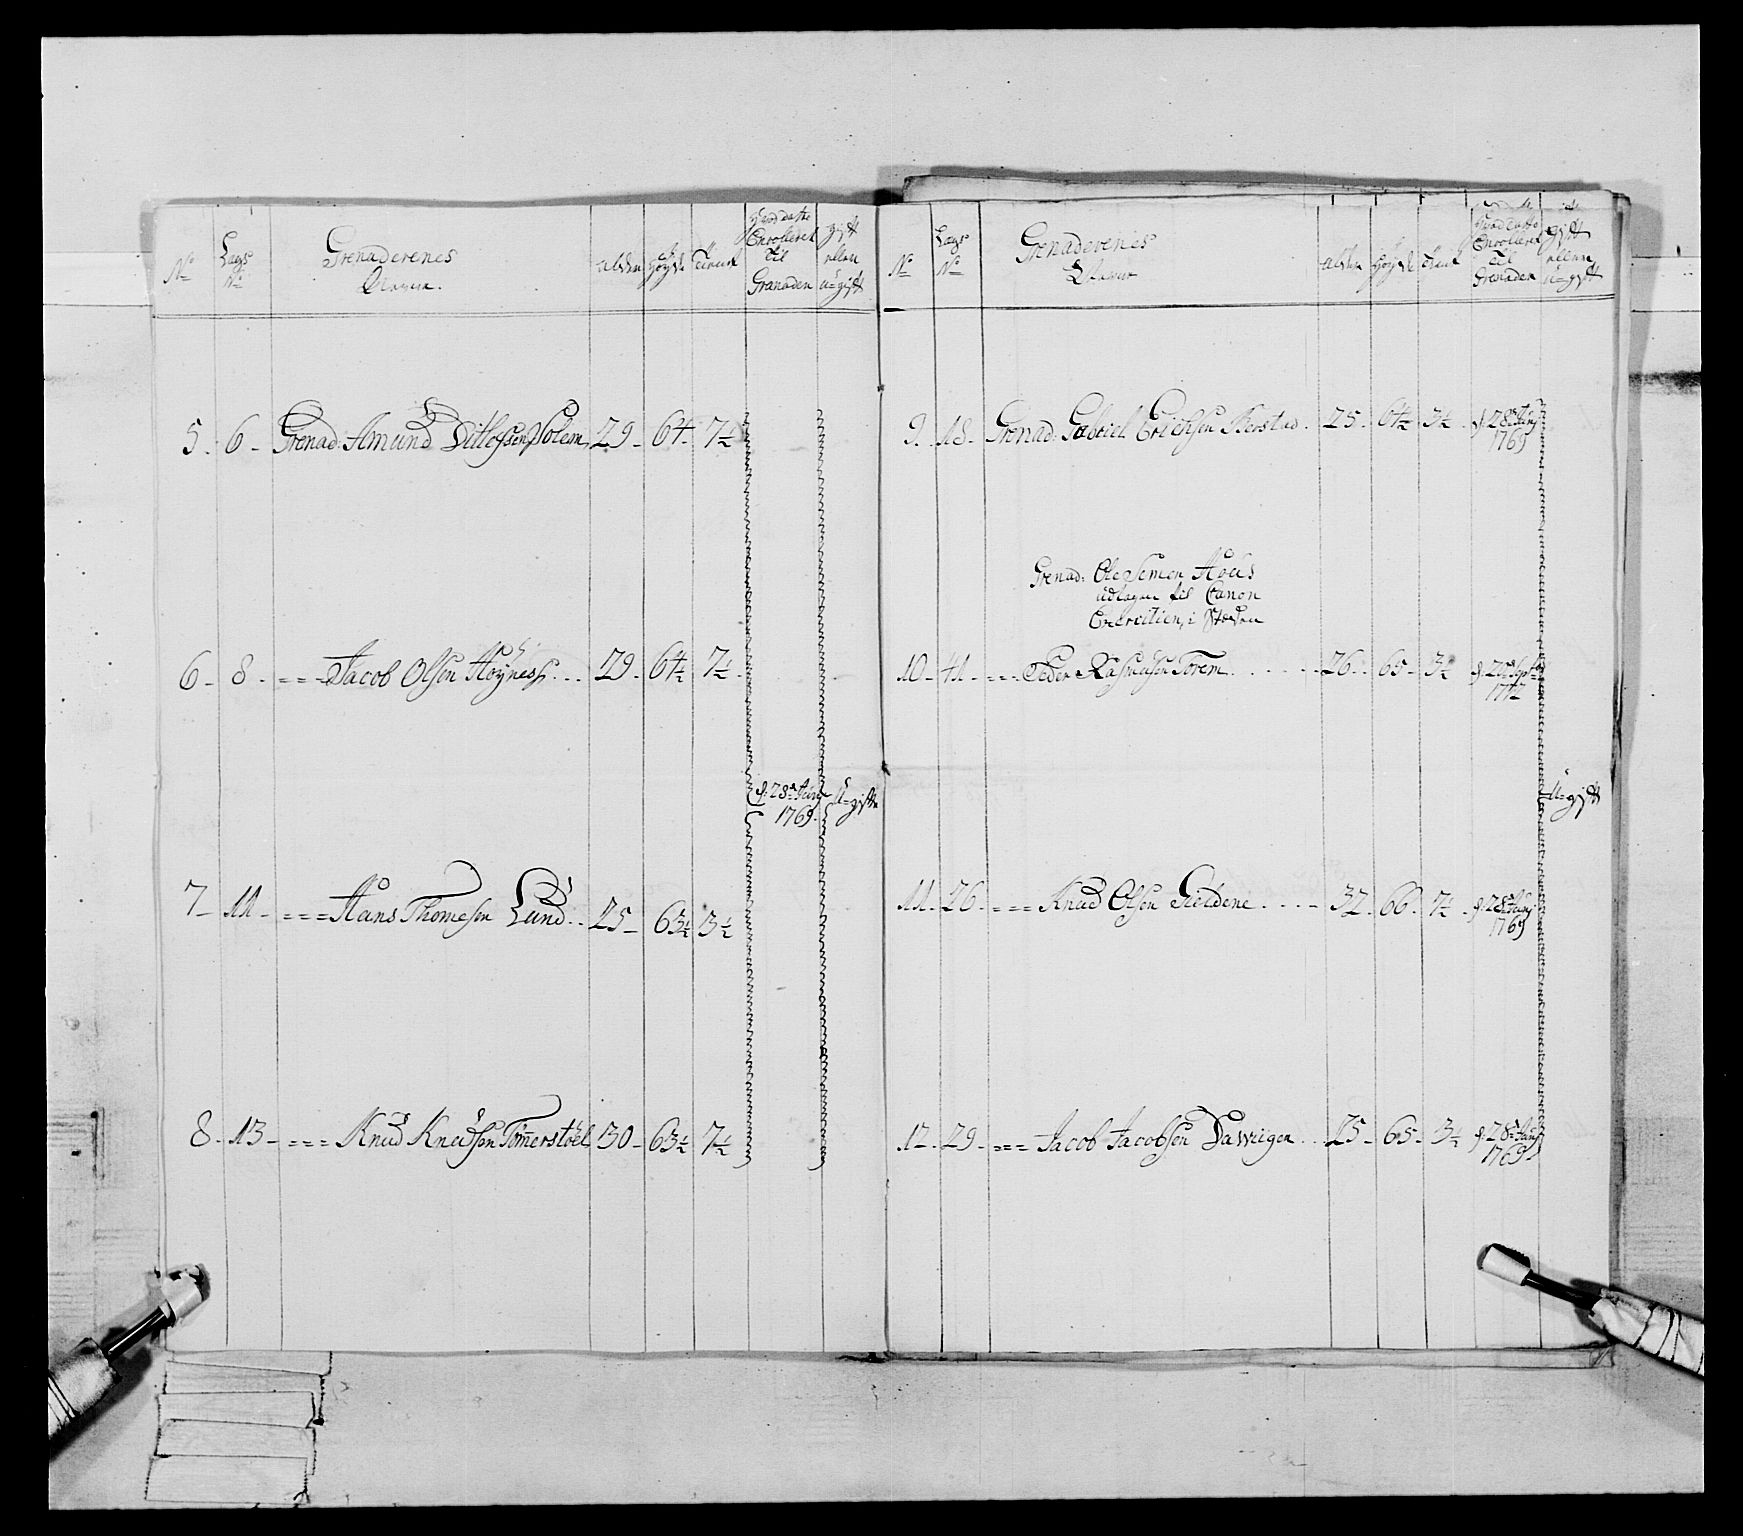 No Lægs No Grenaderenes Nafne. Alder Høyde Tieniist Hvad Datto Enrolleret til Granadeer gift eller u=gift
5. 6 - Grenad: Amund Ditlefsen Solem 29 - 64. 7½
6 - 8 - === Jacob Olsen Høyness... 29. 64½ 7½.
d: 28de Junj 1769. U=gifte
7 - 11 - === Hans Thomesen Lund.. 25 - 63½ 3½
8. 13 - === Knud Knudsen Tømerstøel 30 - 63½ 7½
No Lægs No Grenaderenes Nafne Alder Høyde Tieniist Hvad Datto Enrolleret til Grenadeer gift eller u=gift
9. 18. Grenad: Gabriel Erichsen Berstad. 25. 64½ 3½. d. 28de Junj
1769
Grenad: Ole Simen Aöes
udtagen til Canon
Exercitien, i Steden
10. 41. === Peder Rasmusen Torem...... 26. 65. 3½ d. 20de Septbr
1772
U=gift
11. 26. === Knud Olsen Gieldene.... 32. 66. 7½. d. 28de Junj
1769
12. 29. === Jacob Jacobsen Dawrigen.. 25 - 65 - 3½ d. 28de Junj
1769